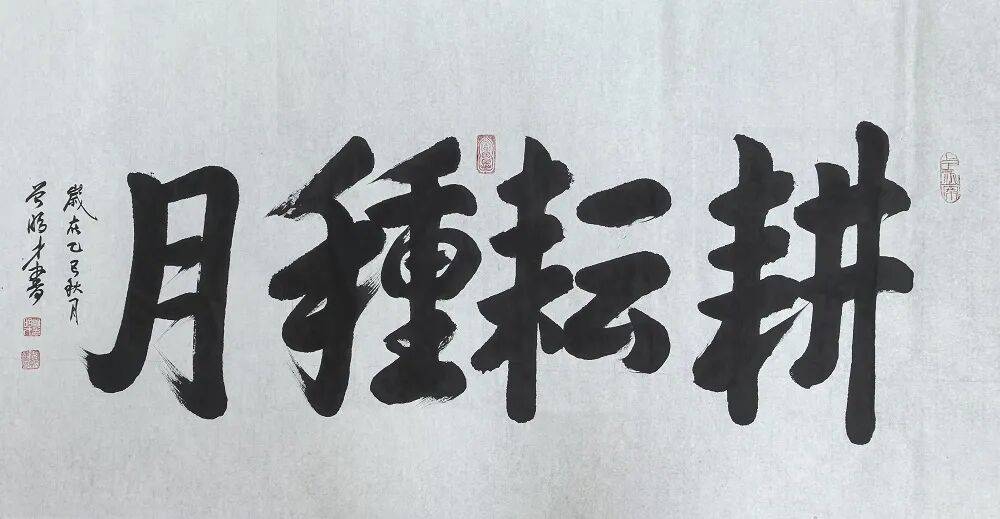 耕耘種月
歲在乙巳秋月
才書